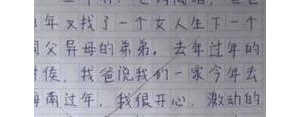 年又找了一个女人生下一个
同父异母的弟弟。去年过年的
时候,我爸说我们一家今年去
海南过年,我很开心,激动的